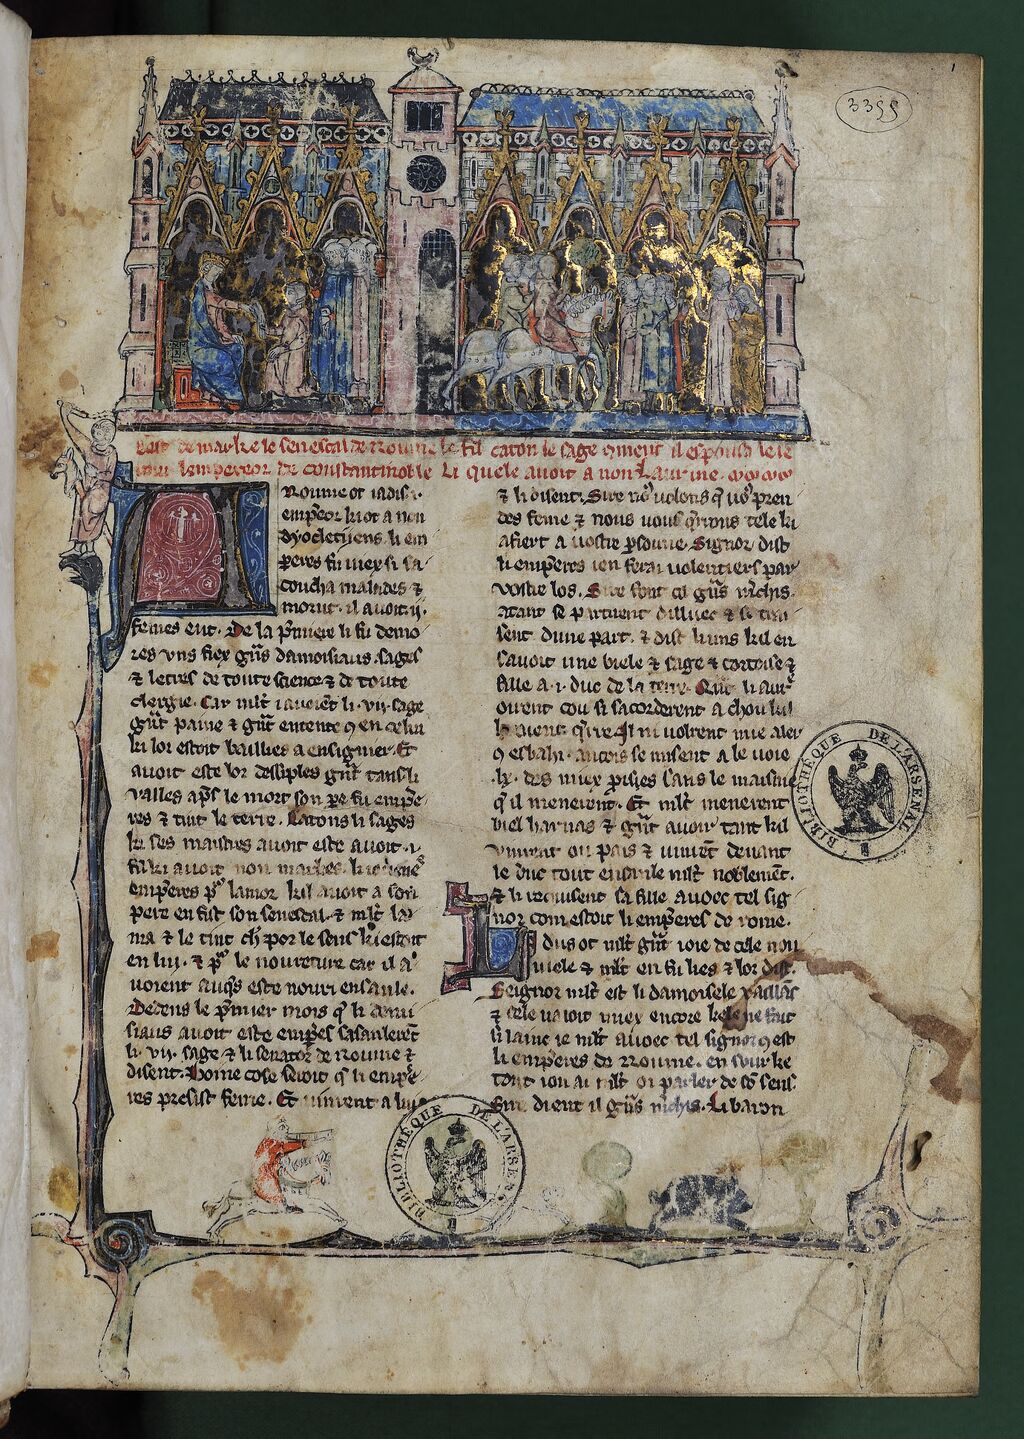 3355
1
de marke le senescal de Roume le fil caton le sage coment il espousa le
lempereor de constantinoble Li quele avoit a non Laurine
A Roume ot iadis .i.
empeor ki ot a non
dyocletiiens. li em
peres fu viex si sa
coucha malades ⁊
morut. il avoit .ij.
femes eut. De la pmiere li fu demo
res vns fiex gns damoisiaus. sages
⁊ letres de toute science ⁊ de toute
clergie. Car mlt i avoient li .vij. sage
gnt paine ⁊ gnt entente en celui
ki lor estoit bailliés a ensignier. Et
avoit este lor desciples gnt tans. li
valles aps le mort son pe fu empe
res ⁊ tint le terre. Catons li sages
ki ses maistres avoit este avoit .i.
fil ki avoit non markes.
emperes pr lamor kil avoit a son
pere en fist son senescal. ⁊ mlt la
ma ⁊ le tint chr por le sens ki estoit
en lui. ⁊ pr le noureture car il a
voient este nouri ensanle.
Dedens le pmier mois q li dami
siaus avoit este empes sasanlerent
li .vij. sage ⁊ li senator de Roume ⁊
disent. Bone cose seroit q li empe
res presist feme. Et vinrent a lui
⁊ li disent. Sire no volons q vo pren
des feme ⁊ nous vous qrrons tele ki
afiert a vostre psoune. Signor dist
li emperes ien ferai volentiers par
vostre los. Sire font il gns mchis.
Atant se partirent dilluec ⁊ se
sent dune part. ⁊ dist li uns kil en
savoit une biele ⁊ sage ⁊ cortoise ⁊
fille a .i. duc de la terre. Qant li autr
oirent cou si sacorderent a chou kil
Il ni volrent mie aler
Ancois se misent a le voie
.lx. des miex prisies sans le maisnie
q il menerent. Et mlt menerent
biel harnas ⁊ gnt avoir tant kil
vinrent ou pais ⁊ vinrent devant
le duc tout ensanle mlt noblement.
⁊ li requisent sa fille avoec tel sig
nor com estoit li emperes de rome.
Li dus ot mlt gnt ioie de cele nou
viele ⁊ mlt en fu lies ⁊ lor dist.
Seignor mlt est li damoisele
⁊ sele valoit miex encore kele ne fait
si laime ie mlt avoec tel signor est
li emperes de Roume. en sour ke
tout ion ai mlt oi parler de so sens.
Sire dient il gns mchis. Li baron
BIBLIOTHÈQUE DE L'ARSENAL
BIBLIOTHÈQUE DE L'ARSENAL